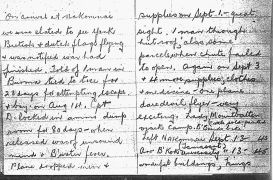 On arrival at Nakomnai
we were elated to see York
British & dutch flags flying
& was notified war had
finished. Told of 2 man in
Burma tied to tree for
28 days for attempting escape
& buy on Aug 1st. Capt
D. locked in ammo dump
room for 80 days - when
released was unsound
mind & B'water fever.
Plane dropped men &
supplies on Sept 1 - great
sight, 1 man through
hut roof, also some
parcels when chute failed
to open. Again on Sept 3
& 4 more supplies, clothes
& medicine - our plane
daredevil flyer - very
exciting. Lady Mountbatten
visits camp.
Left Nakomnai Sept 13
Arr B'Kok Sept 13
wonderful buildings, Kings